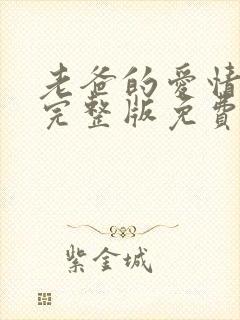 老爸的愛情
完整版免費
紫金城